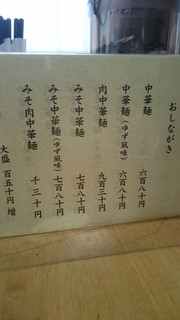 おしながき
中華麺 六百八十円
中華麺(ゆず風味) 六百八十円
肉中華麺 九百三十円
みそ中華麺 七百八十円
みそ中華麺(ゆず風味) 七百八十円
みそ肉中華麺 千三十円
大盛 百五十円 増